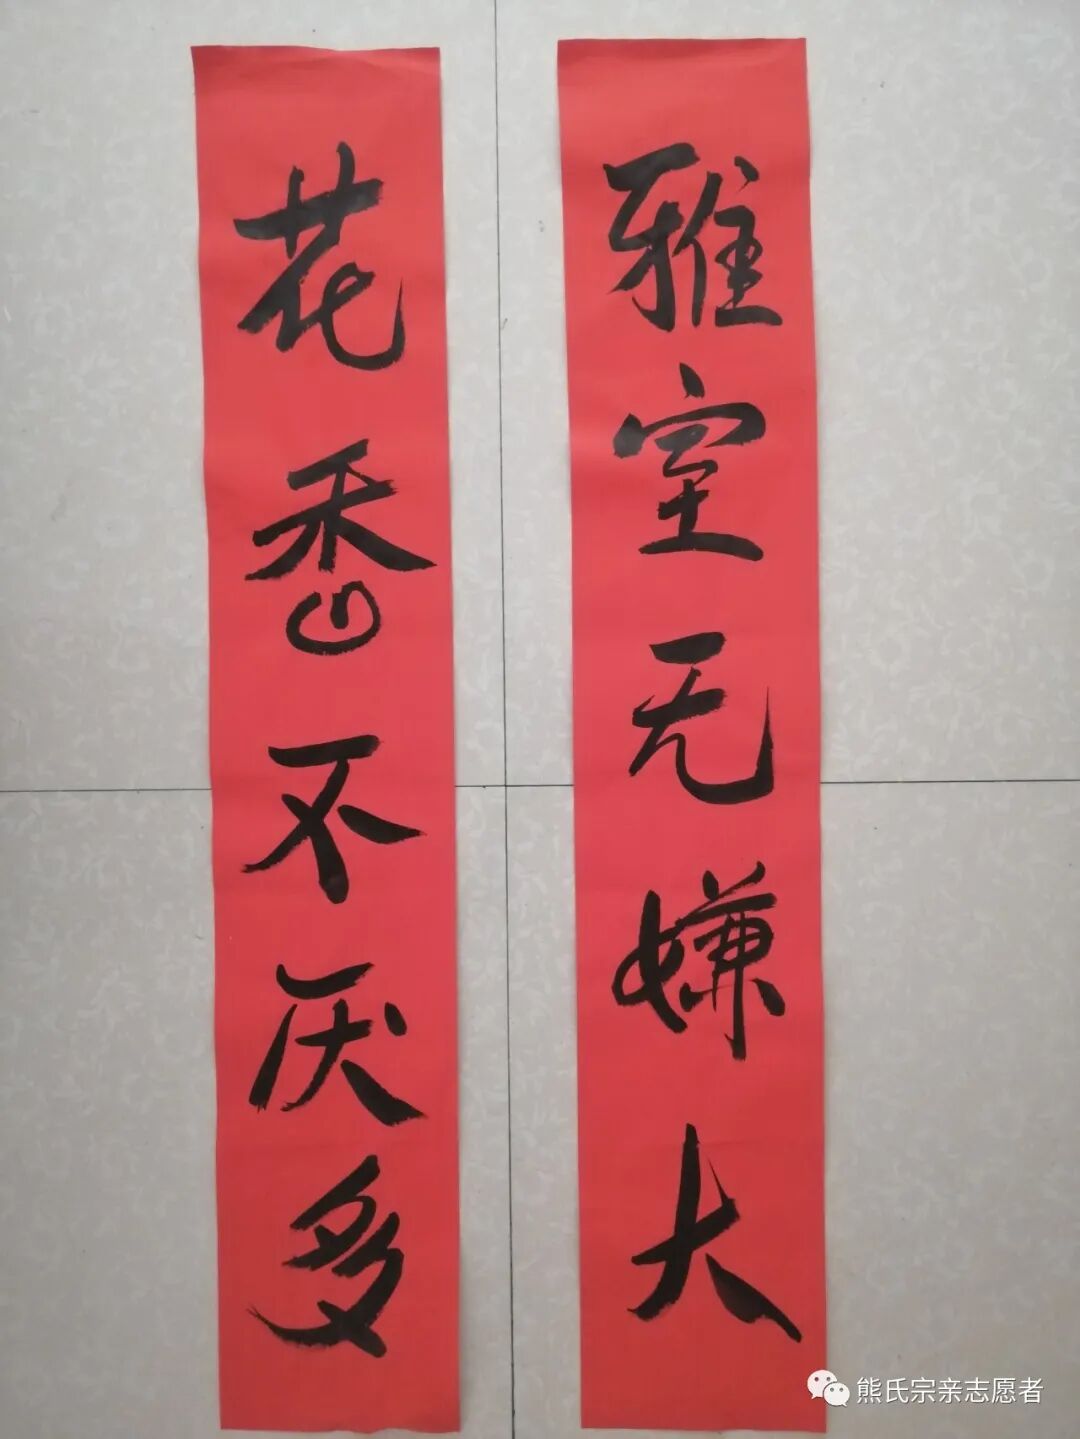 雅室无嫌大
花香不厌多
熊氏宗亲志愿者